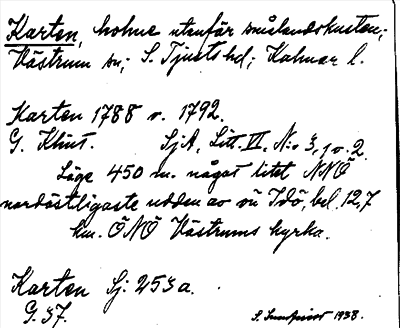 Karten, holme utanför smålandskusten;
Västrum sn; S. Tjusts hd; Kalmar l.
Karten 1788 o. 1792.
G. Klint. SjA, Litt. VI, N:o 3, 1 o. 2.
Läge 450 m. något litet NNÖ
nordöstligaste udden av ön Idö, bel. 12,7
km. ÖNÖ Västrums kyrka.
Karten Sj. 253 a.
G. 37.
S. 1938.